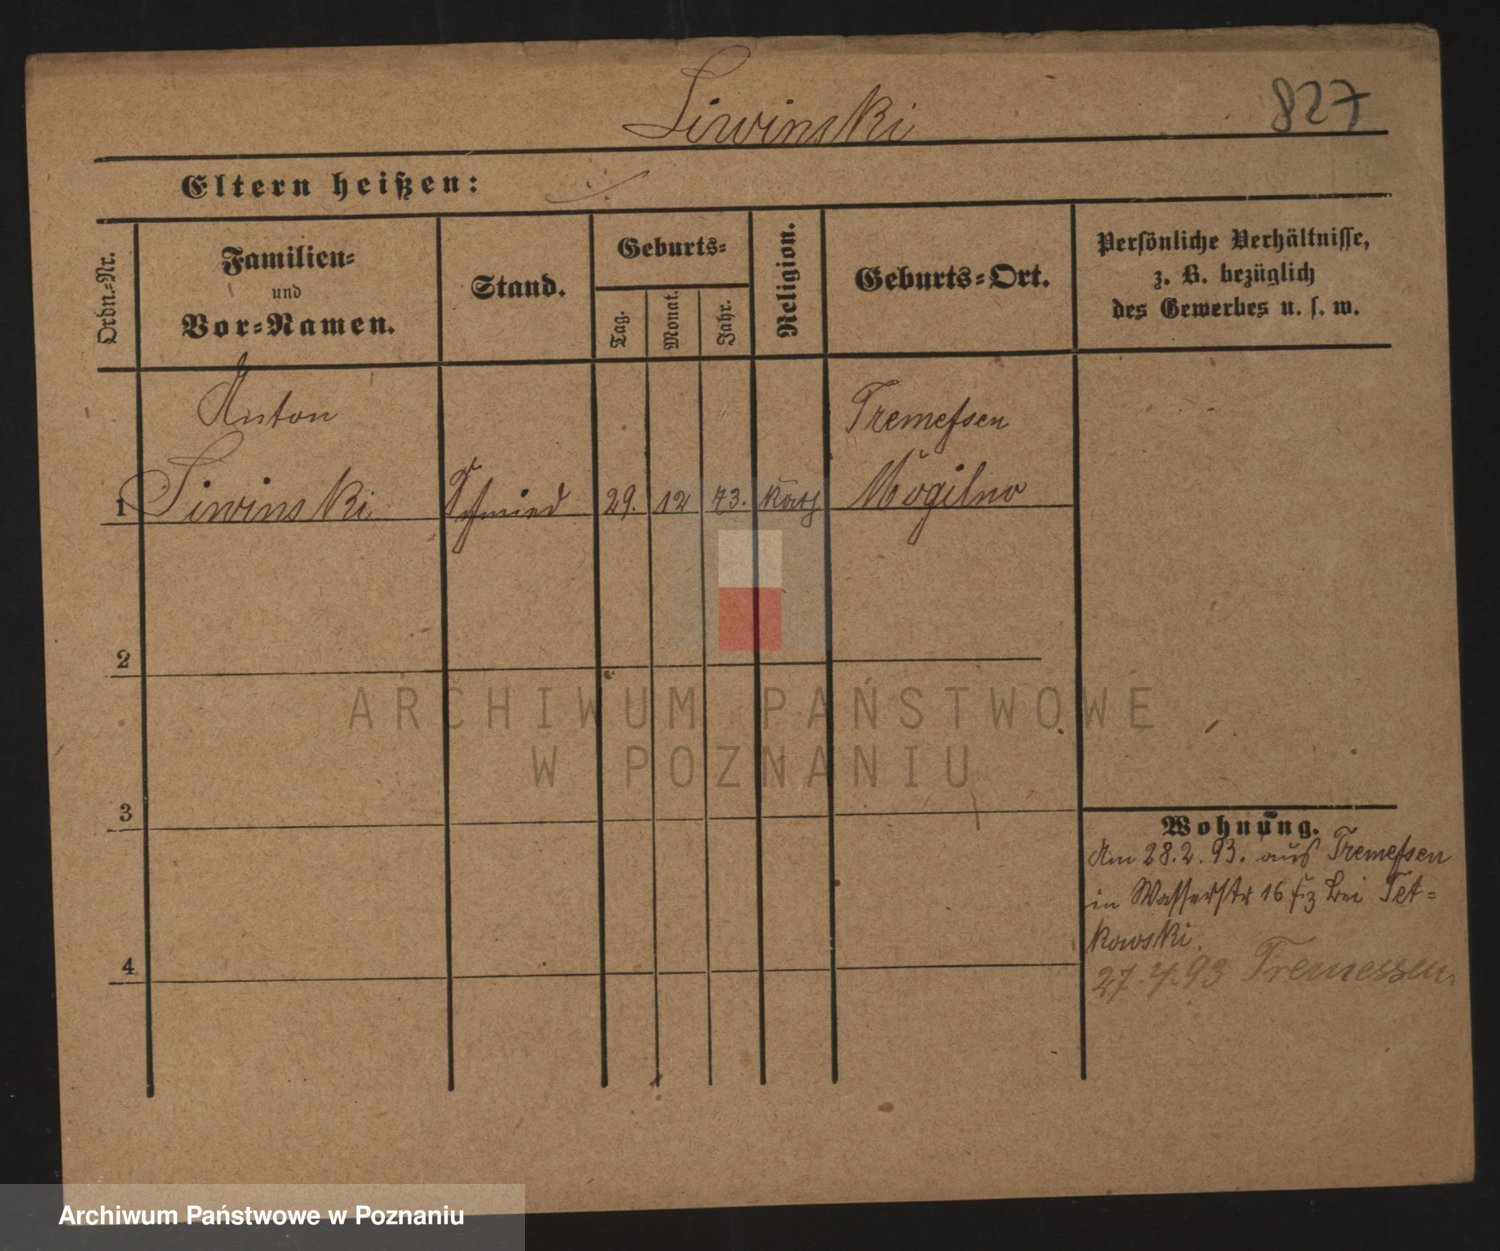 Liwinski
827
Eltern heißen:
Ordn.-Nr.
Familien-
und
Vor-Namen.
Stand.
Geburts-
Tag.
Monat.
Jahr.
Religion.
Geburts-Ort.
Persönliche Verhältnisse,
z. B. bezüglich
des Gewerbes u. s. w.
Anton
Tremessen
1 Liwinski Schmied 29. 12 73. kath Mogilno
2
3
4
Wohnung.
Am 28.2.93. aus Tremessen
in Wasserstr 16 bei Tet-
kowski.
27.4.93 Tremessen.
ARCHIWUM PAŃSTWOWE
W POZNANIU
Archiwum Państwowe w Poznaniu